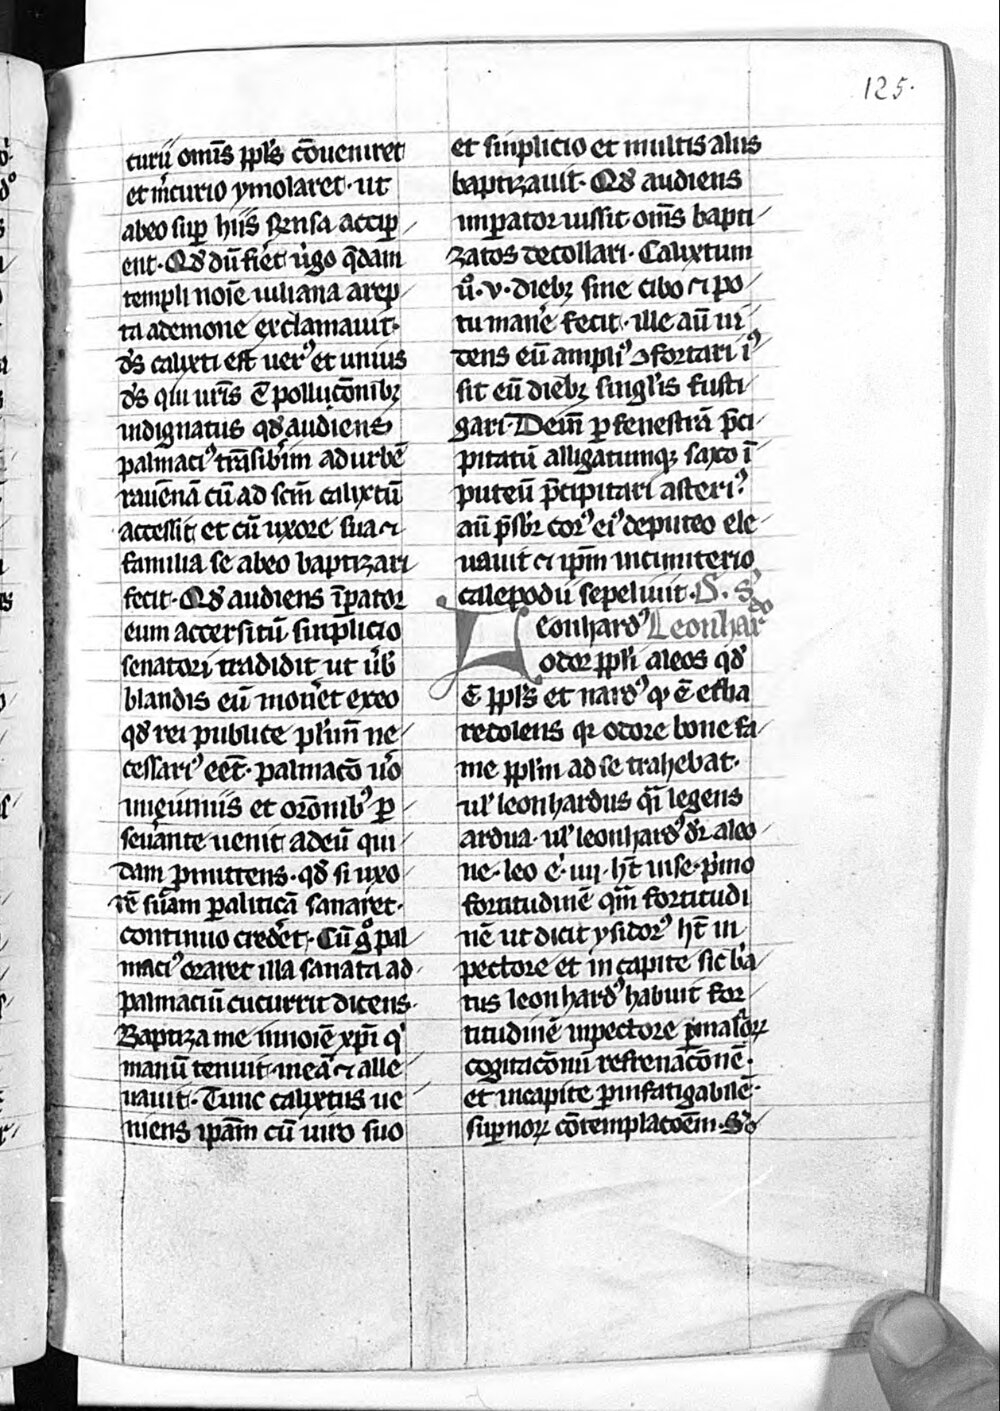 125.
turij om̄s ppl̄s c̄oueniret
et m̄curio ymolaret · ut
abeo sup̱ hiis sp̄nsa accip̱
ent · Qd̄ dū fiēt ūgo q̄dam
templi noīe iuliana arep
ta ademone exclamauit ·
d̄s calixti est uer᷒ et unius
d̄s qui ur̄is ē pollucōnibꝫ
indignatus qd̄ audiens
palmaci᷒ trāsibīm ad urbē
rauēnā cū ad sc̄m calixtū
accessit et cū uxore sua ⁊
familia se abeo baptizari
fecit · Qd̄ audiens īpator
eum accersitū simplicio
senatori tradidit ut ūb̄
blandis eū mouēt exeo
qd̄ rei publice pl̄im̄ ne
cessari᷒ eēt · palmacō ūo
in ieiuniis et orōnib᷒ ꝑ
seuante uenit adeū qui
dam ꝓmittens · qd̄ si uxo
rē suam ꝑaliticā sanaret ·
continuo credēt · Cū gͦ pal
maci᷒ oraret illa sanata ad
palmaciū cucurrit dicens ·
Baptiza me innoīe xp̄i qͥ
manū tenuit meā ⁊ alle
uauit · Tunc calixtus ue
niens ip̄am cū uiro suo
et simplicio et multis aliis
baptizauit · Qd̄ audiens
imꝑator iussit om̄s bapti
zatos decollari · Calixtum
ūͦ · v · diebꝫ sine cibo ⁊ po
tu manē fecit · ille aū ui
dens eū ampli᷒ ꝯfortari i᷒
sit eū diebꝫ singl̄is fusti
gari · Dein̄ ꝑ fenestrā p̄ci
pitatū alligatumqꝫ saxo ī
puteū p̄cipitari asteri᷒
aū p̄sbr̄ cor᷒ ei᷒ deputeo ele
uauit ⁊ ip̄m incimiterio
calepodii sepeliuit · D. s᷒
Leonhard᷒ Leonhardo
odor ppl̄i aleos qd̄
ē ppl̄s et nard᷒ qͥ ē erba
redolens qr̄ odore bone fa
me ppl̄m ad se trahebat ·
ul᷒ leonhardus q̄i legens
ardua · ul᷒ leonhard᷒ dr̄ aleo
ne · leo ē · iiii · ht̄ inse · p̄imo
fortitudinē qm̄ fortitudi
nē ut dicit ysidor᷒ ht̄ in
pectore et in capite sic bā
tus leonhard᷒ habuit for
titudinē inpectore ꝑ maloꝝ
cogitacōnū refrenacōnē ·
et incapite ꝑ infatigabilē
suꝑnoꝝ cōtemplacōēm · Sͦo